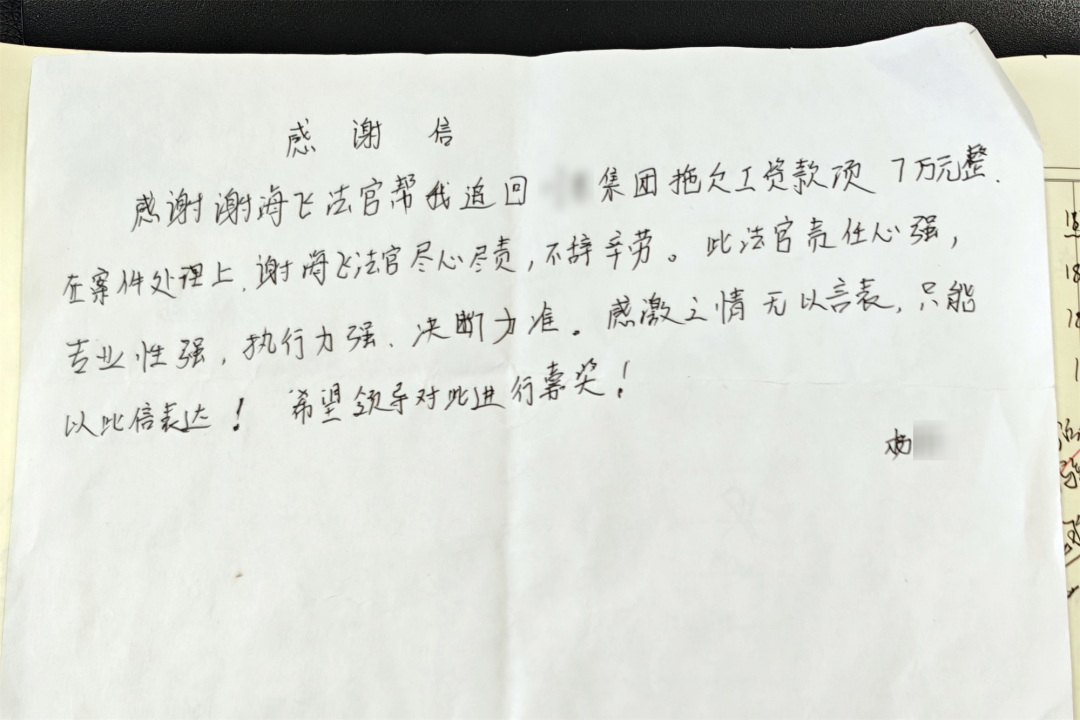 感谢信
感谢谢海飞法官帮我追回 集团拖欠工资款项 7万元整.
在案件处理上,谢海飞法官尽心尽责,不辞辛劳。此法官责任心强,
专业性强,执行力强、决断力准。感激之情无以言表,只能
以此信表达! 希望领导对此进行嘉奖!
杨
18
18
1